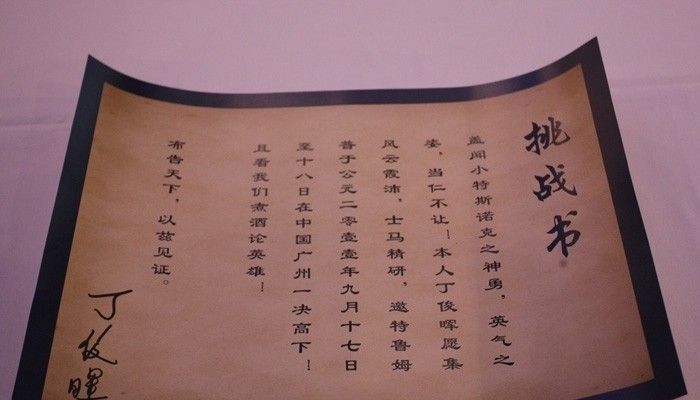 挑战书
盖闻小特斯诺克之神勇，英气之
姿，当仁不让！本人丁俊晖愿集
风云霞沛，士马精研，邀特鲁姆
普于公元二零壹壹年九月十七日
至十八日在中国广州一决高下！
且看我们煮酒论英雄！
布告天下，以兹见证。
丁俊晖